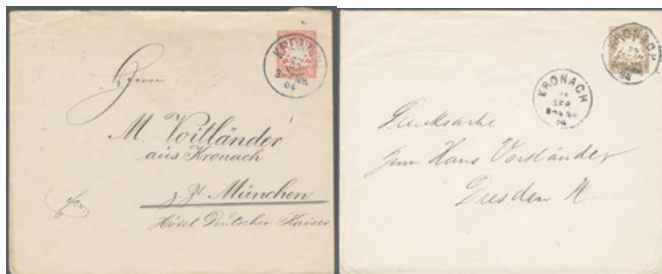 Herrn
M. Voitländer
aus Kronach
z. Zt. München
Hôtel Deutscher Kaiser
KRONACH
04
KRONACH
SEP
94
KRONACH
94
Drucksache
Herrn Hans Voitländer
Dresden A.